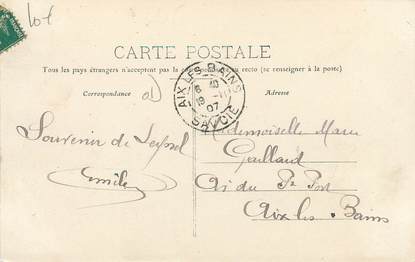 Lot
CARTE POSTALE
Tous les pays étrangers n'acceptent pas la correspondance au recto (se renseigner à la poste)
Correspondance
Adresse
AIX-LES-BAINS
6 40
18 -11
07
SAVOIE
Souvenir de Seyssel
Emile
Mademoiselle Marie
Gaillard
du Pt Port
Aix les Bains